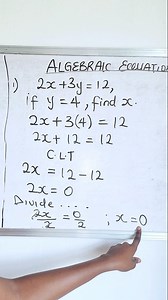 ALGEBRAIC EQUATION
1) 2x+3y=12,
if y=4, find x.
2x+3(4)=12
2x+12=12
C.L.T
2x=12-12
2x=0
Divide ....
2x/2=0/2 ; x=0